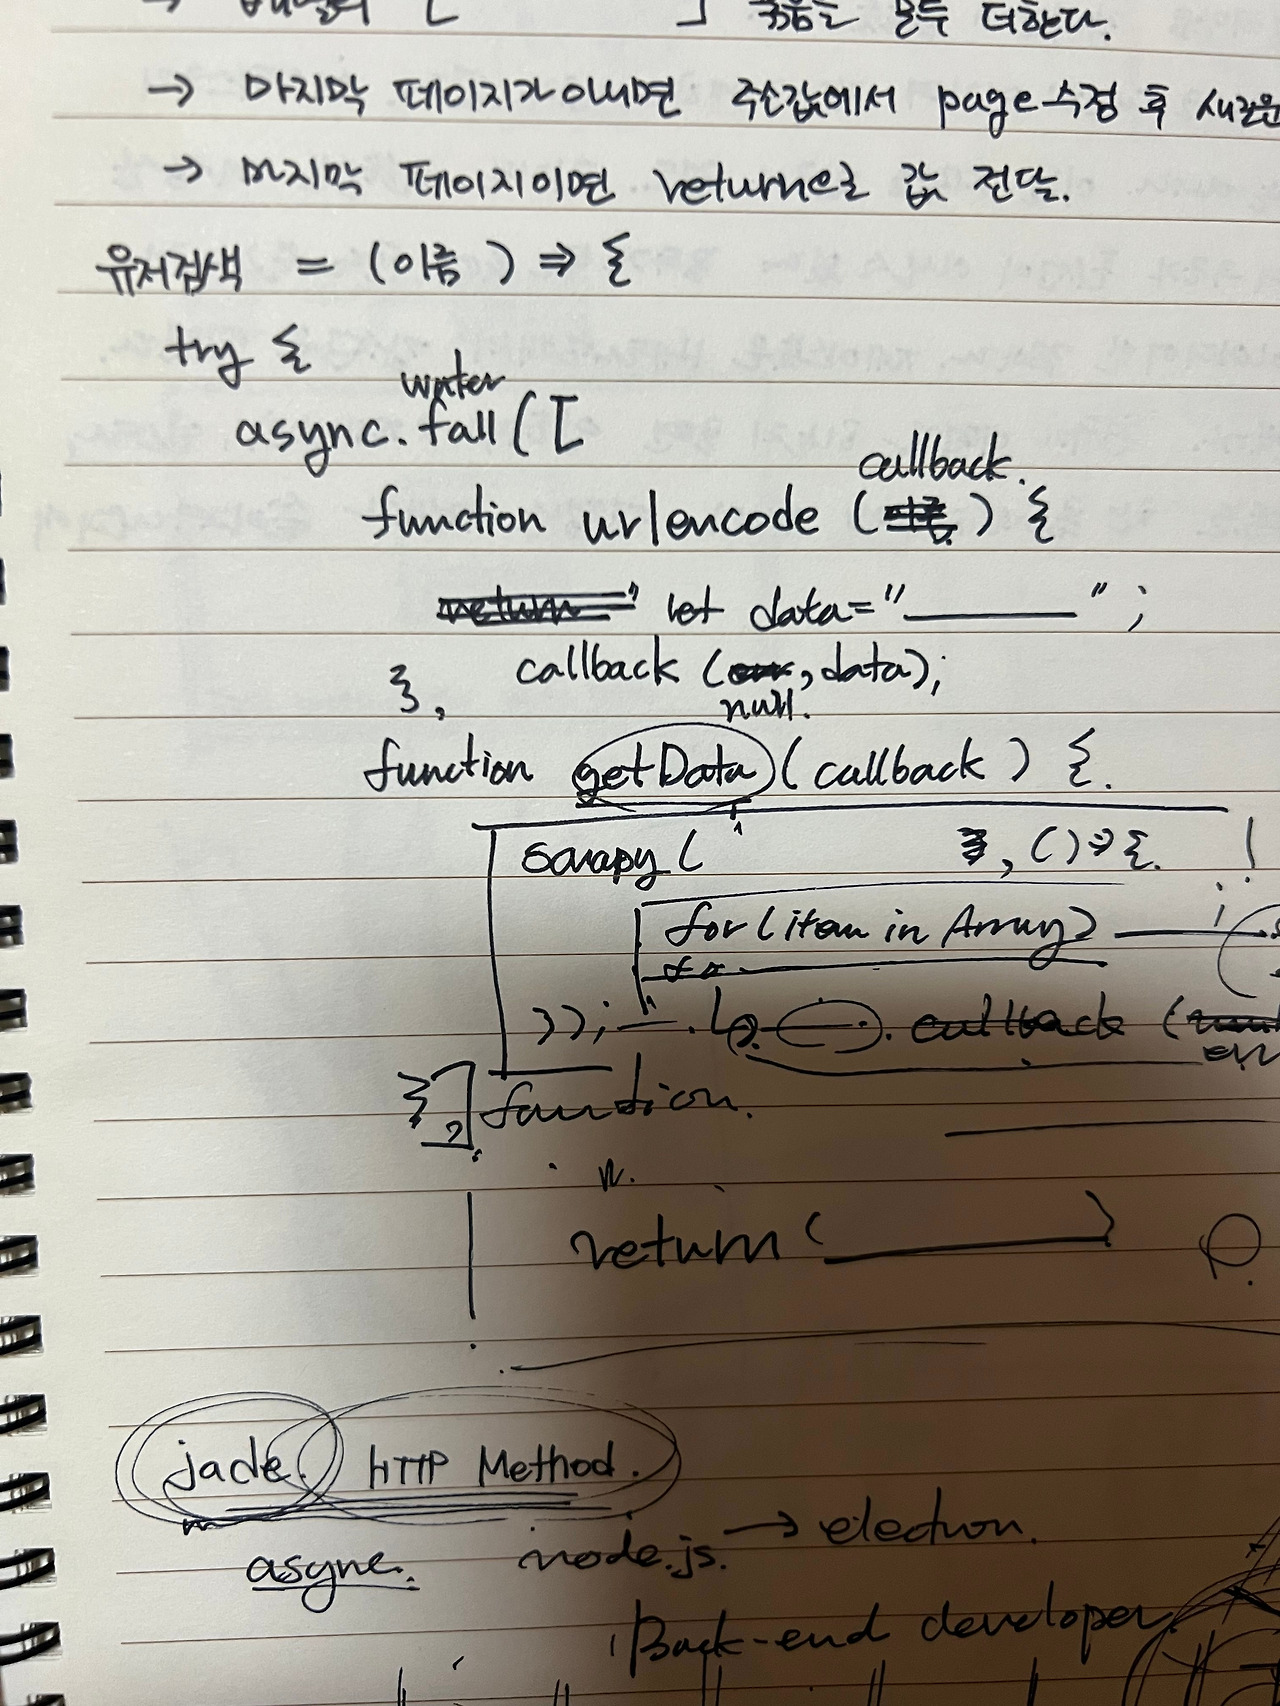 → 배열의 [ ] 묶음을 모두 더한다.
→ 마지막 페이지가 아니면 주소값에서 page 수정 후 새로운
→ 마지막 페이지이면 return으로 값 전달.
유저검색 = (이름) ⇒ {
try {
water
async.fall ([
callback.
function urlencode ( ) {
let data = " " ;
callback ( , data);
null.
},
function getData (callback) {
, () ⇒ {. !
for (item in Array)
));
callback (
}, function.
return ( )
jade. HTTP Method.
async. node.js. → electron.
Back-end developer